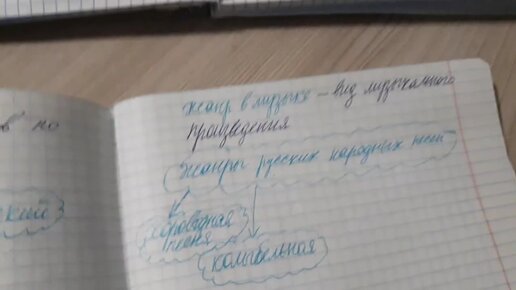 в но
жанр в музыке – вид музыкального
произведения
Жанры русских народных песен
хороводная
песня
колыбельная